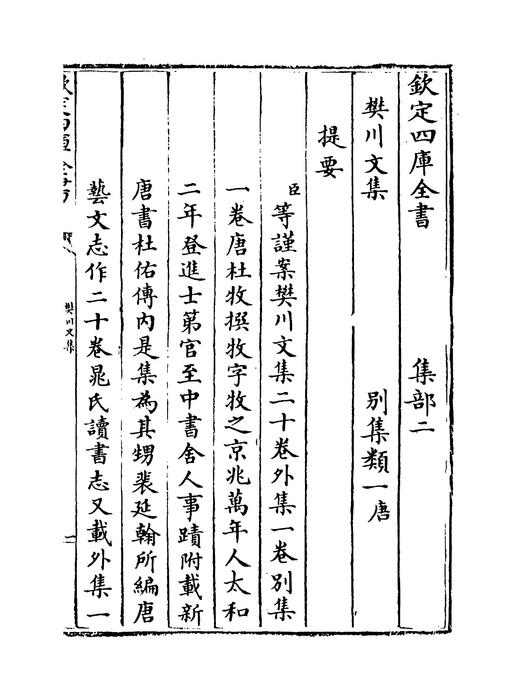 欽定四庫全書　集部二
樊川文集　別集類一唐
提要
臣等謹案樊川文集二十卷外集一卷別集
一卷唐杜牧撰牧字牧之京兆萬年人太和
二年登進士第官至中書舍人事蹟附載新
唐書杜佑傳內是集為其甥裴延翰所編唐
藝文志作二十卷晁氏讀書志又載外集一
樊川文集